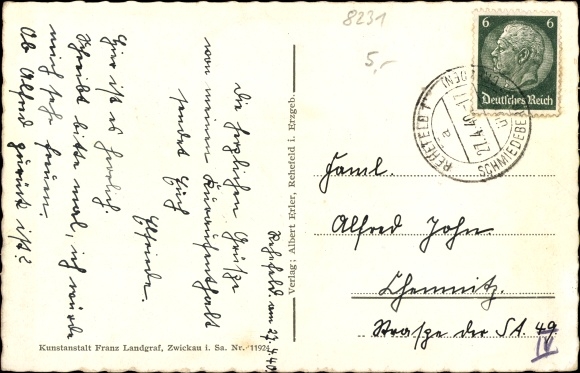 8231
5,-
6 6
Deutsches Reich
REHEFELD
SCHMIEDEBERG
a
27.4.40
Rehefeld, am 27.4.40
Die herzlichen Grüße
von meinem Kuraufenthalt
sendet Euch
Elfriede.
Hier ist es herrlich.
Schreibt bitte mal, ich würde
mich sehr freuen.
Ob Alfred zurück ist?
Verlag: Albert Erler, Rehefeld i. Erzgeb.
Faml.
Alfred John
Chemnitz.
Straße der SA. 49
IV
Kunstanstalt Franz Landgraf, Zwickau i. Sa. Nr. 11924